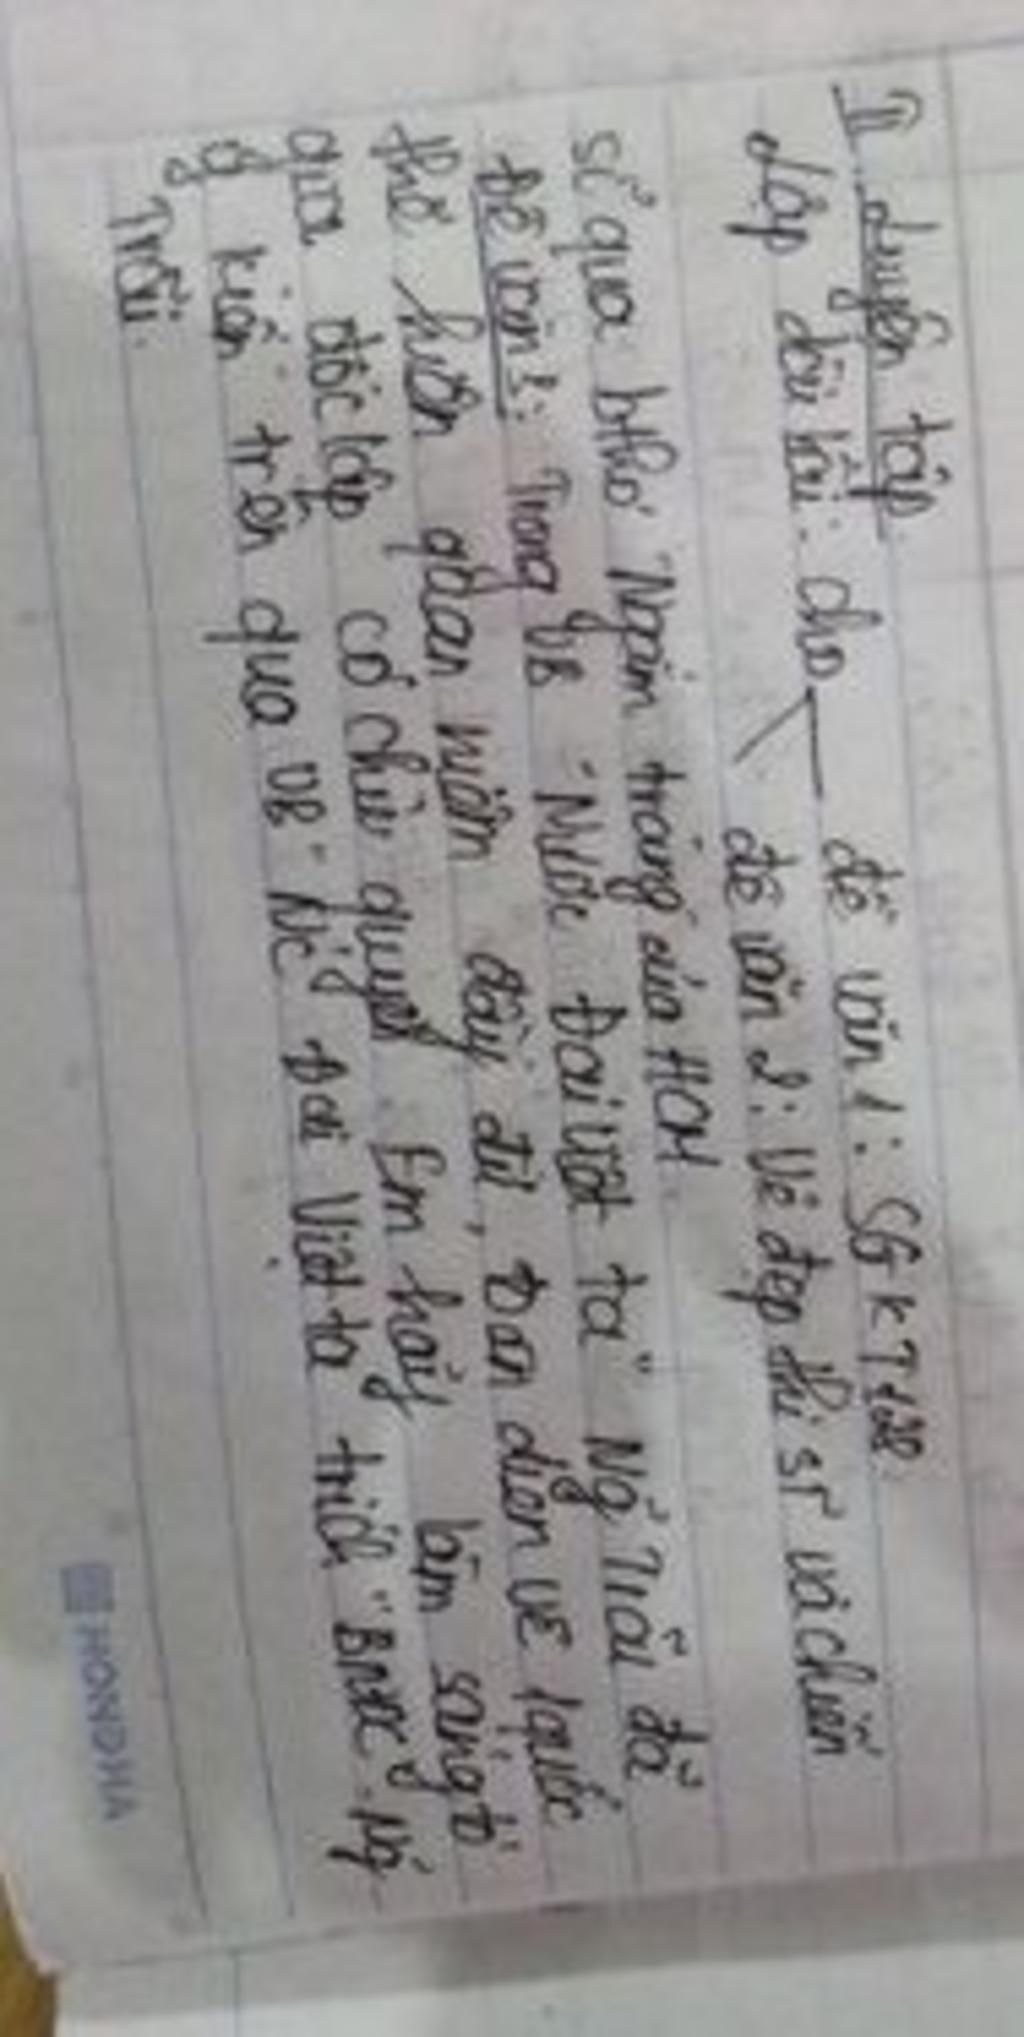 II. Luyện tập.
Lập dàn bài: cho đề văn 1: SGKT128
đề văn 2: Vẻ đẹp thi sĩ và chiến
sĩ qua bthơ "Ngắm trăng" của HCM
Đề văn 3: Trong VB "Nước Đại Việt ta" Ng Trãi đã
thể hiện quan niệm đầy đủ, toàn diện về 1 quốc
gia độc lập có chủ quyền. Em hãy làm sáng tỏ
ý kiến trên qua VB "Nc Đại Việt ta trích "BNĐC". Ng
Trãi.
HONG HA